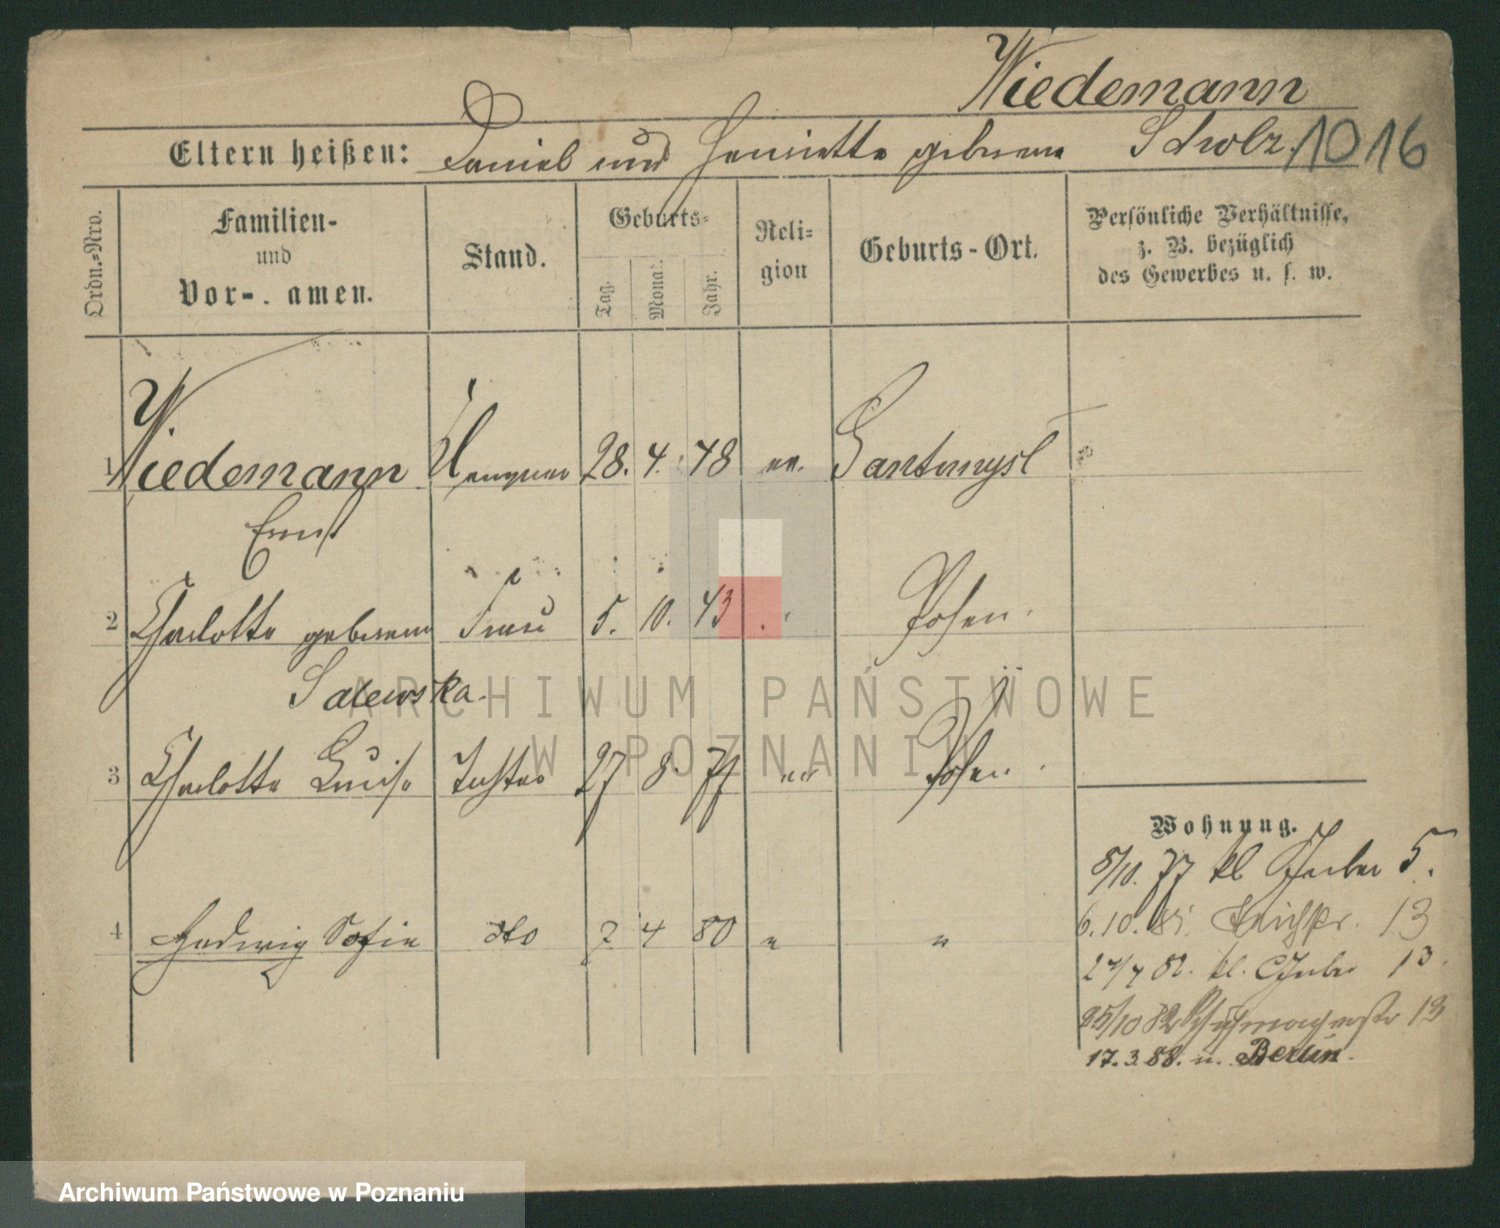 Wiedemann
Eltern heißen: Daniel und Henriette geborene Scholz. 1016
Ordn.-Nro.
Familien-
und
Vor- amen.
Stand.
Geburts-
Tag.
Monat.
Jahr.
Reli-
gion
Geburts-Ort.
Persönliche Verhältnisse,
z. B. bezüglich
des Gewerbes u. s. w.
1 Wiedemann 28. 4. 48 ev. Santomysl
Ernst
2 Charlotte geborene Frau 5. 10. 43 Posen.
Salewska.
3 Charlotte Luise Tochter 27 8. 77 ev Posen.
Wohnung.
5/10. 77 kl Gerber 5.
4 Hedwig Sofie dto 2 4 80 " "
6. 10. 81. Teichstr. 13
27/7 82. kl. Gerber 13.
25/10 82 13
17. 3. 88. n. Berlin.
ARCHIWUM PAŃSTWOWE
W POZNANIU
Archiwum Państwowe w Poznaniu